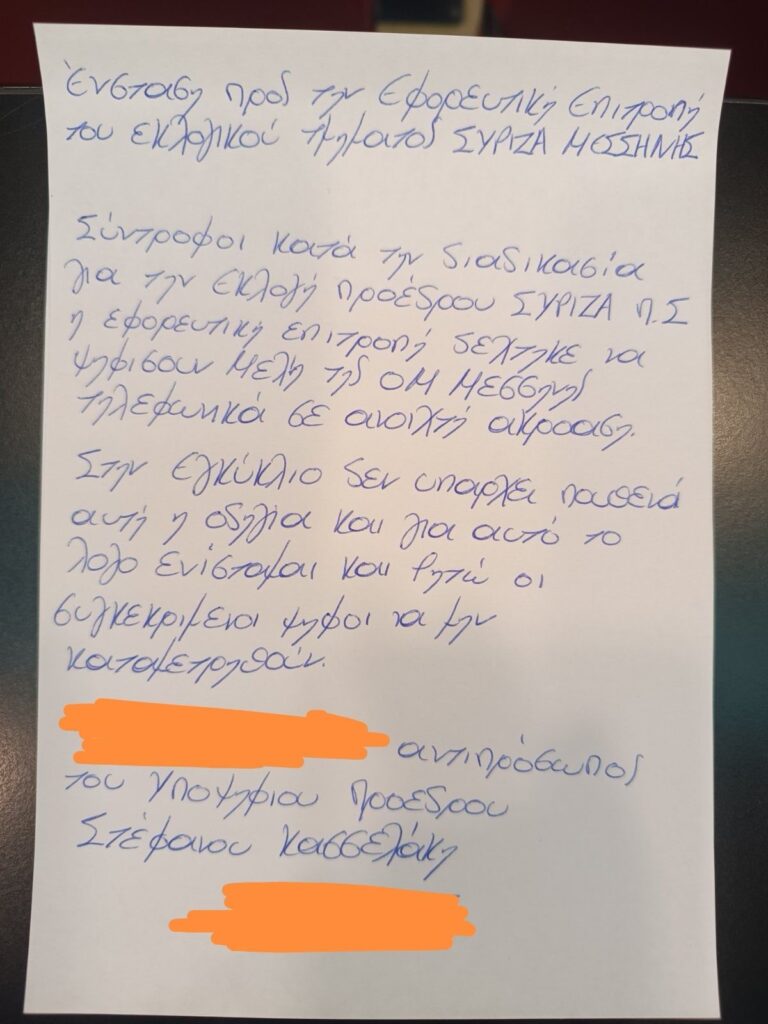 Ένσταση προς την Εφορευτική Επιτροπή
του εκλογικού τμήματος ΣΥΡΙΖΑ ΜΕΣΣΗΝΗΣ
Σύντροφοι κατά την διαδικασία
για την εκλογή προέδρου ΣΥΡΙΖΑ Π.Σ
η εφορευτική επιτροπή δέχτηκε να
ψηφίσουν μέλη της ΟΜ Μεσσήνης
τηλεφωνικά σε ανοιχτή ακρόαση.
Στην εγκύκλιο δεν υπάρχει πουθενά
αυτή η οδηγία και για αυτό το
λόγο ενίσταμαι και ζητώ οι
συγκεκριμένοι ψήφοι να μην
καταμετρηθούν.
αντιπρόσωπος
του υποψηφίου προέδρου
Στέφανου Κασσελάκη